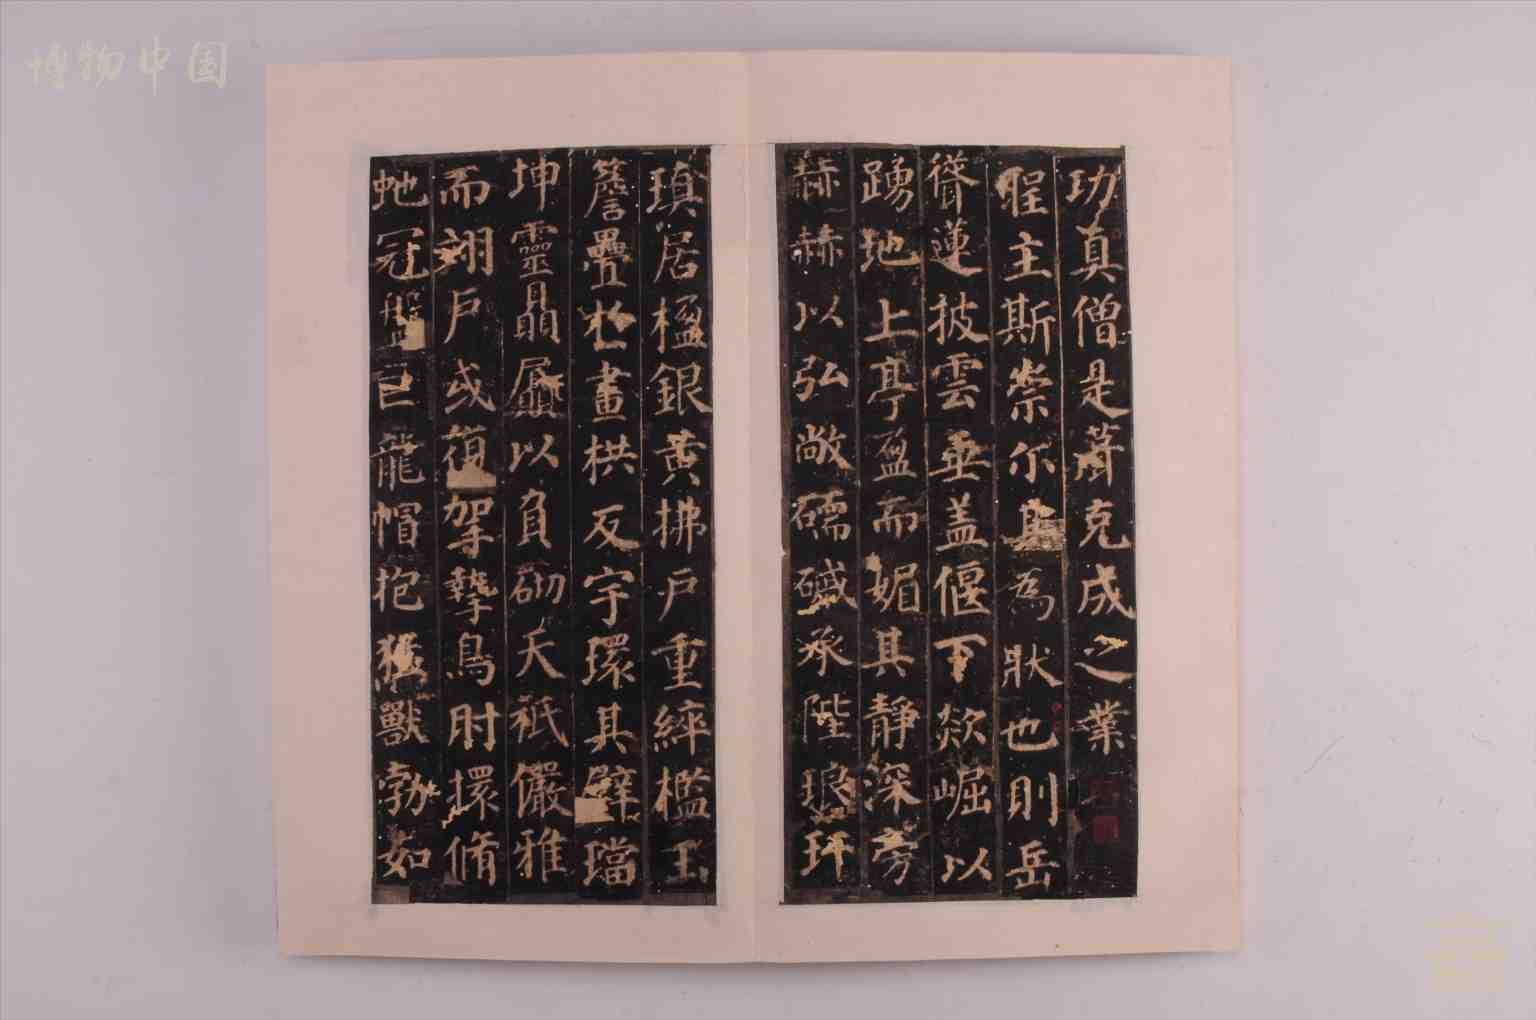 博物中国
功真僧是葺克成之業
聖主斯崇尔其為狀也則岳
聳蓮披雲垂蓋偃下欻崛以
踴地上亭盈而媚其靜深旁
赫赫以弘敞礝磩承陛琅玕
瑱居楹銀黃拂戶重綷檻玉
簷疊於畫栱反宇環其璧璫
坤靈贔屭以負砌天祇儼雅
而翊戶或復挐摯鳥肘擐脩
虵冠盤巨龍帽抱猛獸勃如